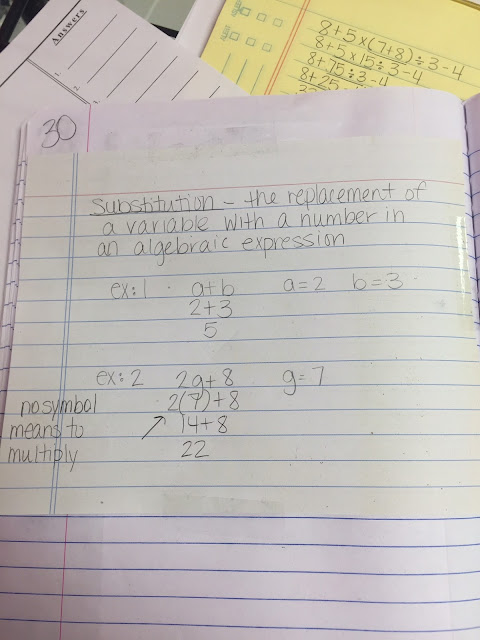 Answers
1.
2.
8+5×(7+8)÷3-4
8+5×15÷3-4
8+75÷3-4
8+25
30
Substitution - the replacement of
a variable with a number in
an algebraic expression
ex:1 a+b a=2 b=3
2+3
5
ex: 2 2g+8 g=7
no symbol 2(7)+8
means to ↗ 14+8
multiply 22